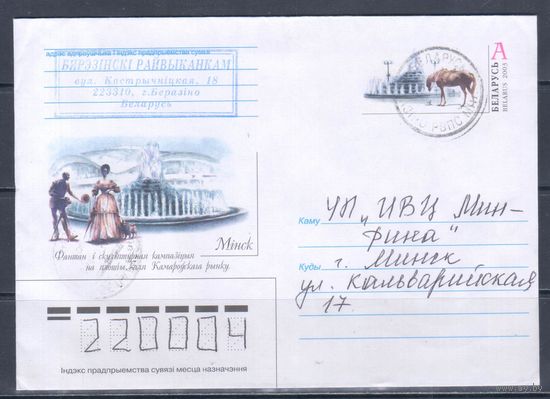 адрас адпраўшчыка і індэкс прадпрыемства сувязі
БЕРЭЗІНСКІ РАЙВЫКАНКАМ
вул. Кастрычніцкая, 18
223310, г.Беразіно
Беларусь
А
БЕЛАРУСЬ
BELARUS 2003
Мінск
Фантан і скульптурная кампазіцыя
на плошчы каля Камароўскага рынку
Каму УП „ИВЦ Мин-
фина"
Куды г. Минск
ул. Кальварийская
17
220004
Індэкс прадпрыемства сувязі месца назначэння